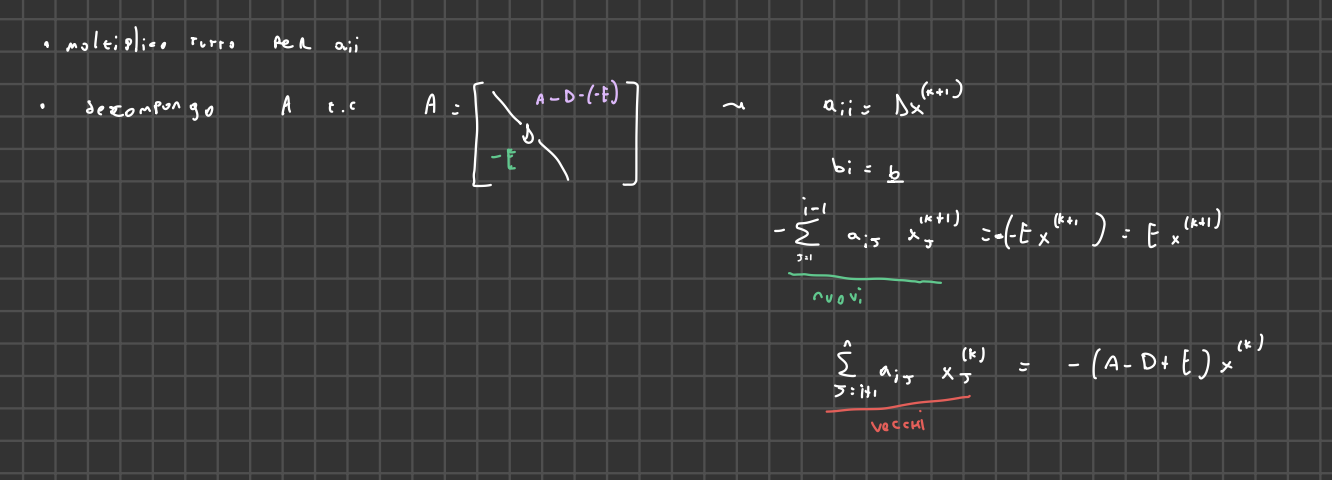 • moltiplico tutto per aii
• decompongo A t.c A = [ D -E A-D-(-E) ] ~ aii = Dx^(k+1)
bi = b
- ∑_{j=1}^{i-1} a_ij x_j^(k+1) = -(-Ex^(k+1) ) = Ex^(k+1)
nuovi
∑_{j=i+1}^{n} a_ij x_j^(k) = -(A-D+E)x^(k)
vecchi